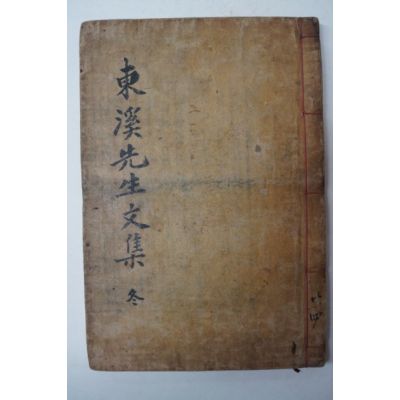 東溪先生文集 冬